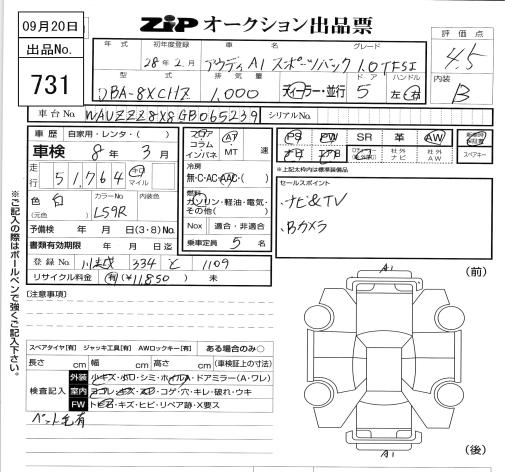 09月20日
ZIP オークション出品票
出品No.
731
年式 初年度登録 車名 グレード
28年2月 アウディA1 スポーツバック 1.0TFSI
型式 排気量 ドア ハンドル
DBA-8XCHZ 1,000 ディーラー・並行 5 左・右
評価点
4.5
内装
B
車台No. WAUZZZ8X8GB065239 シリアルNo.
車歴 自家用・レンタ・( )
車検 8年3月
走行 51,764 キロ マイル
色 白 (元色) カラーNo L59R 内装色
予備検 年 月 日(3・8)No
書類有効期限 年 月 日迄
登録No 川越 334 と 1109
リサイクル料金 有(¥11,850) 未
フロア コラム インパネ AT MT 速
冷房
無・C・AC・AAC・( )
燃料
ガソリン・軽油・電気・その他( )
Nox 適合・非適合
乗車定員 5 名
PS PW SR 革 AW
ナビ AW
スペアキー
※上記太枠内は標準装備品
セールスポイント
・ナビ&TV
・Bカメラ
※ご記入の際はボールペンで強くご記入下さい。
[注意事項]
スペアタイヤ[有] ジャッキ工具[有] AWロックキー[有] ある場合のみ○
長さ cm 幅 cm 高さ cm (車検証上の寸法)
検査記入
外装 小キズ・小凹・シミ・ホイルA・ドアミラー(A・ワレ)
室内 ヨゴレ・キズ・スレ・コゲ・穴・キレ・破れ・ウキ
FW トビ石・キズ・ヒビ・リペア跡・X要ス
ペット毛有
(前)
A1
A1
(後)